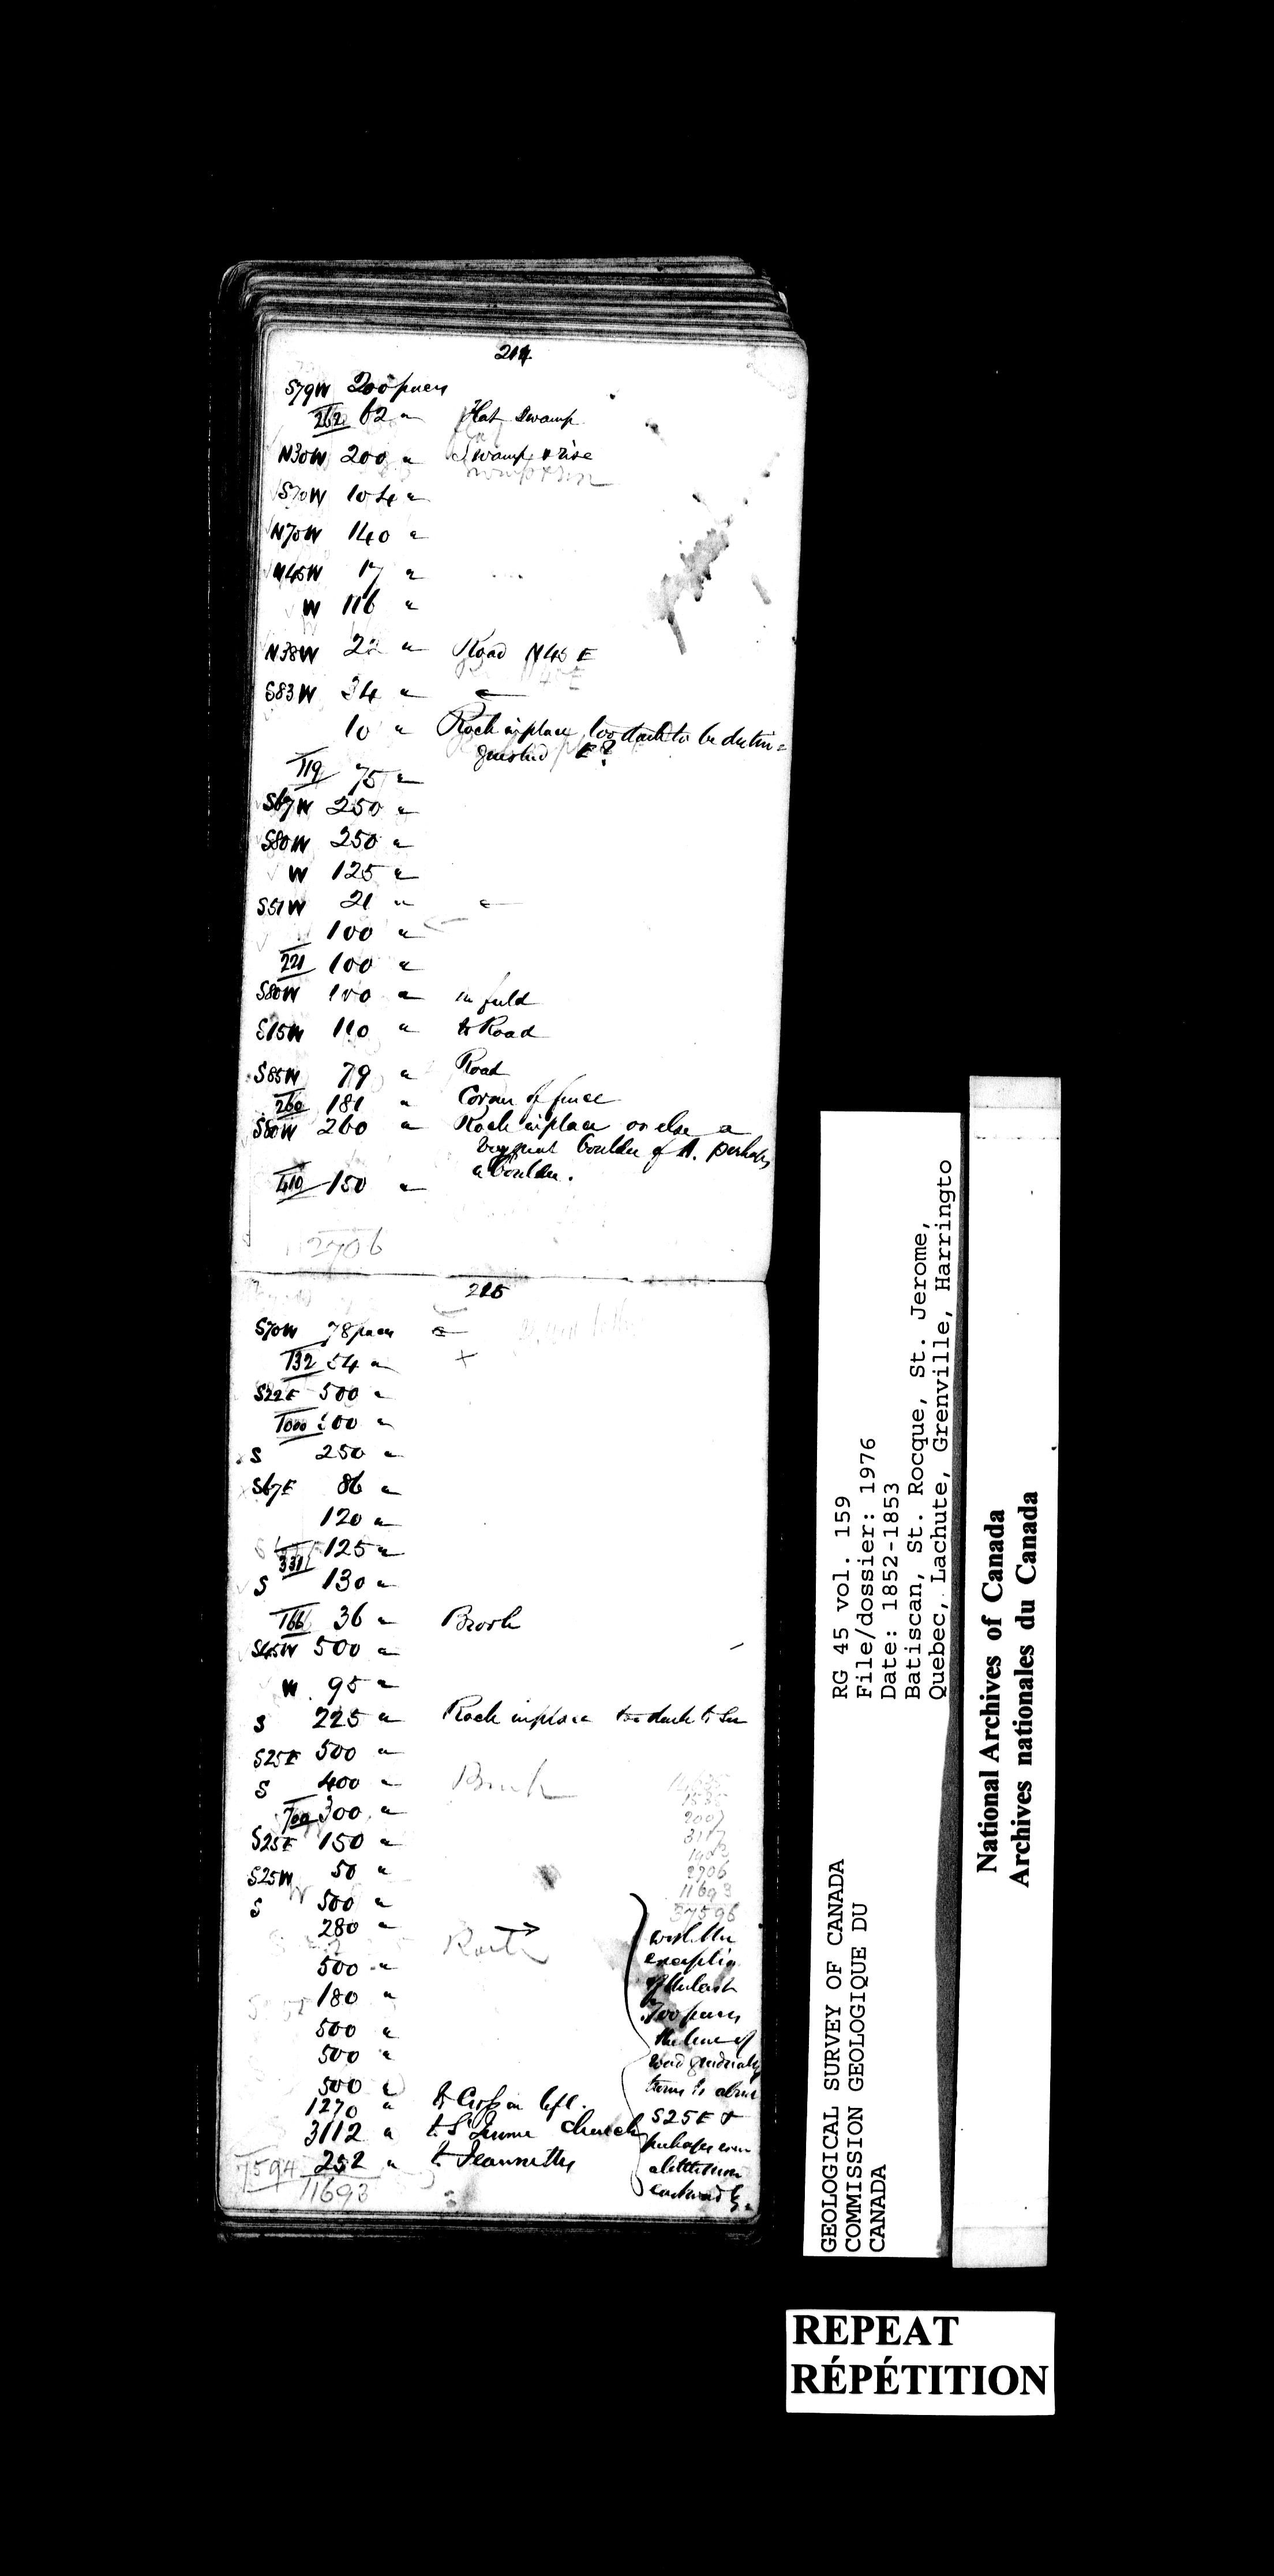 214
S79W 200 paces
262 62 " Flat Swamp
N30W 200 " Swamp & rise
S70W 104 "
N70W 140 "
N45W 17 "
W 116 "
N38W 22 " Road N45E
S83W 34 " ←
10 " Rock in place too dark to be distin=
guished E?
119 75 "
S67W 250 "
S80W 250 "
W 125 "
S51W 21 " ←
100 "
221 100 "
S80W 100 " in field
S15W 110 " to Road
S85W 79 " Road
260 181 " Corner of fence
S80W 260 " Rock in place or else a
very great boulder of A. perhaps
a boulder.
410 150 "
2706
215
S70W 78 paces ←
132 54 " +
S22E 500 "
1000 500 "
S 250 "
S67E 86 "
120 "
331 125 "
S 130 "
166 36 " Brook
S45W 500 "
W 95 "
S 225 " Rock in place too dark to see
S25E 500 "
S 400 " Brook
700 300 "
S25E 150 "
S25W 50 "
S 500 "
280 " →
500 "
180 "
500 "
500 "
500 "
1270 " to Cross on left.
3112 " to St Jerome Church
7594 252 " to Jeannettes
11693
1535
2007
3117
2706
11693
37596
with the
exception
of the last
700 paces
the line of
road gradually
turns to about
S25E &
perhaps even
a little more
eastward
RG 45 vol. 159
File/dossier: 1976
Date: 1852-1853
Batiscan, St. Rocque, St. Jerome,
Quebec, Lachute, Grenville, Harringto
GEOLOGICAL SURVEY OF CANADA
COMMISSION GEOLOGIQUE DU
CANADA
National Archives of Canada
Archives nationales du Canada
REPEAT
RÉPÉTITION